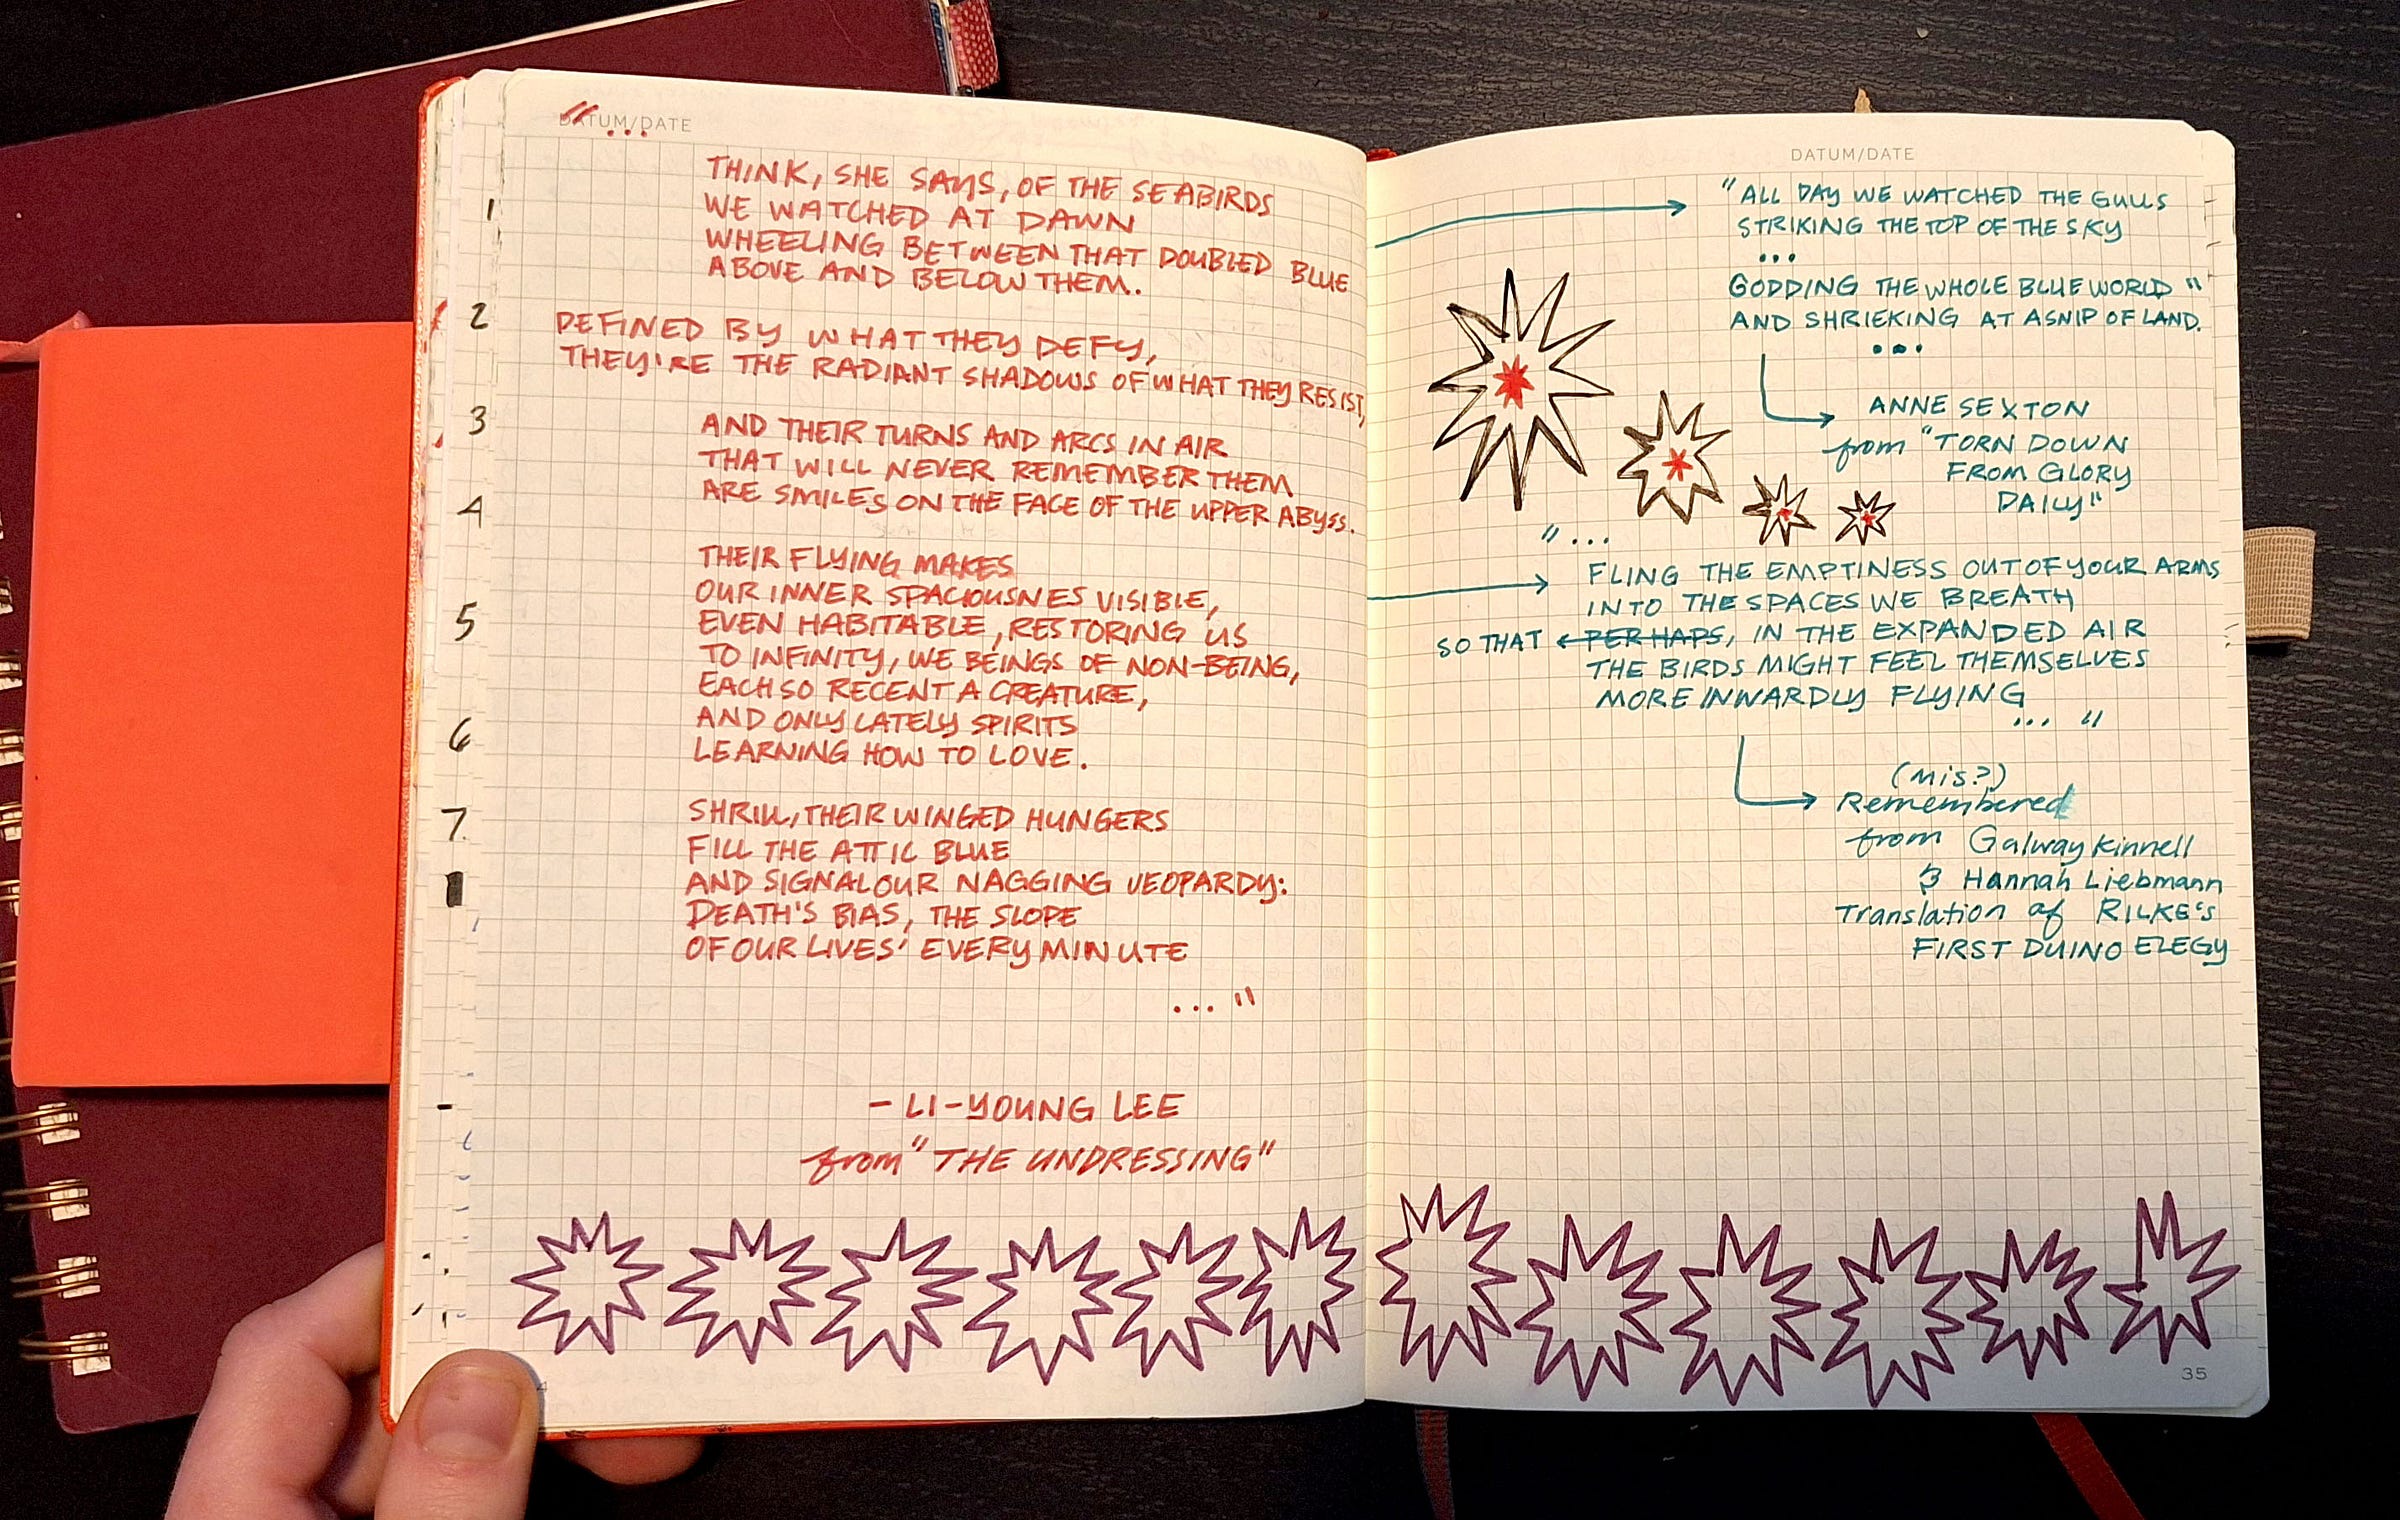 DATUM/DATE
"...
THINK, SHE SAYS, OF THE SEABIRDS
WE WATCHED AT DAWN
WHEELING BETWEEN THAT DOUBLED BLUE
ABOVE AND BELOW THEM.
DEFINED BY WHAT THEY DEFY,
THEY'RE THE RADIANT SHADOWS OF WHAT THEY RESIST,
AND THEIR TURNS AND ARCS IN AIR
THAT WILL NEVER REMEMBER THEM
ARE SMILES ON THE FACE OF THE UPPER ABYSS.
THEIR FLYING MAKES
OUR INNER SPACIOUSNES VISIBLE,
EVEN HABITABLE, RESTORING US
TO INFINITY, WE BEINGS OF NON-BEING,
EACH SO RECENT A CREATURE,
AND ONLY LATELY SPIRITS
LEARNING HOW TO LOVE.
SHRILL, THEIR WINGED HUNGERS
FILL THE ATTIC BLUE
AND SIGNAL OUR NAGGING JEOPARDY:
DEATH'S BIAS, THE SLOPE
OF OUR LIVES' EVERY MINUTE
..."
- LI-YOUNG LEE
from "THE UNDRESSING"
1
2
3
4
5
6
7
DATUM/DATE
"ALL DAY WE WATCHED THE GULLS
STRIKING THE TOP OF THE SKY
...
GODDING THE WHOLE BLUE WORLD "
AND SHRIEKING AT A SNIP OF LAND.
...
ANNE SEXTON
from "TORN DOWN
FROM GLORY
DAILY"
"...
FLING THE EMPTINESS OUT OF YOUR ARMS
INTO THE SPACES WE BREATH
SO THAT PERHAPS, IN THE EXPANDED AIR
THE BIRDS MIGHT FEEL THEMSELVES
MORE INWARDLY FLYING
... "
(mis?)
Remembered
from Galway Kinnell
& Hannah Liebmann
Translation of RILKE'S
FIRST DUINO ELEGY
35